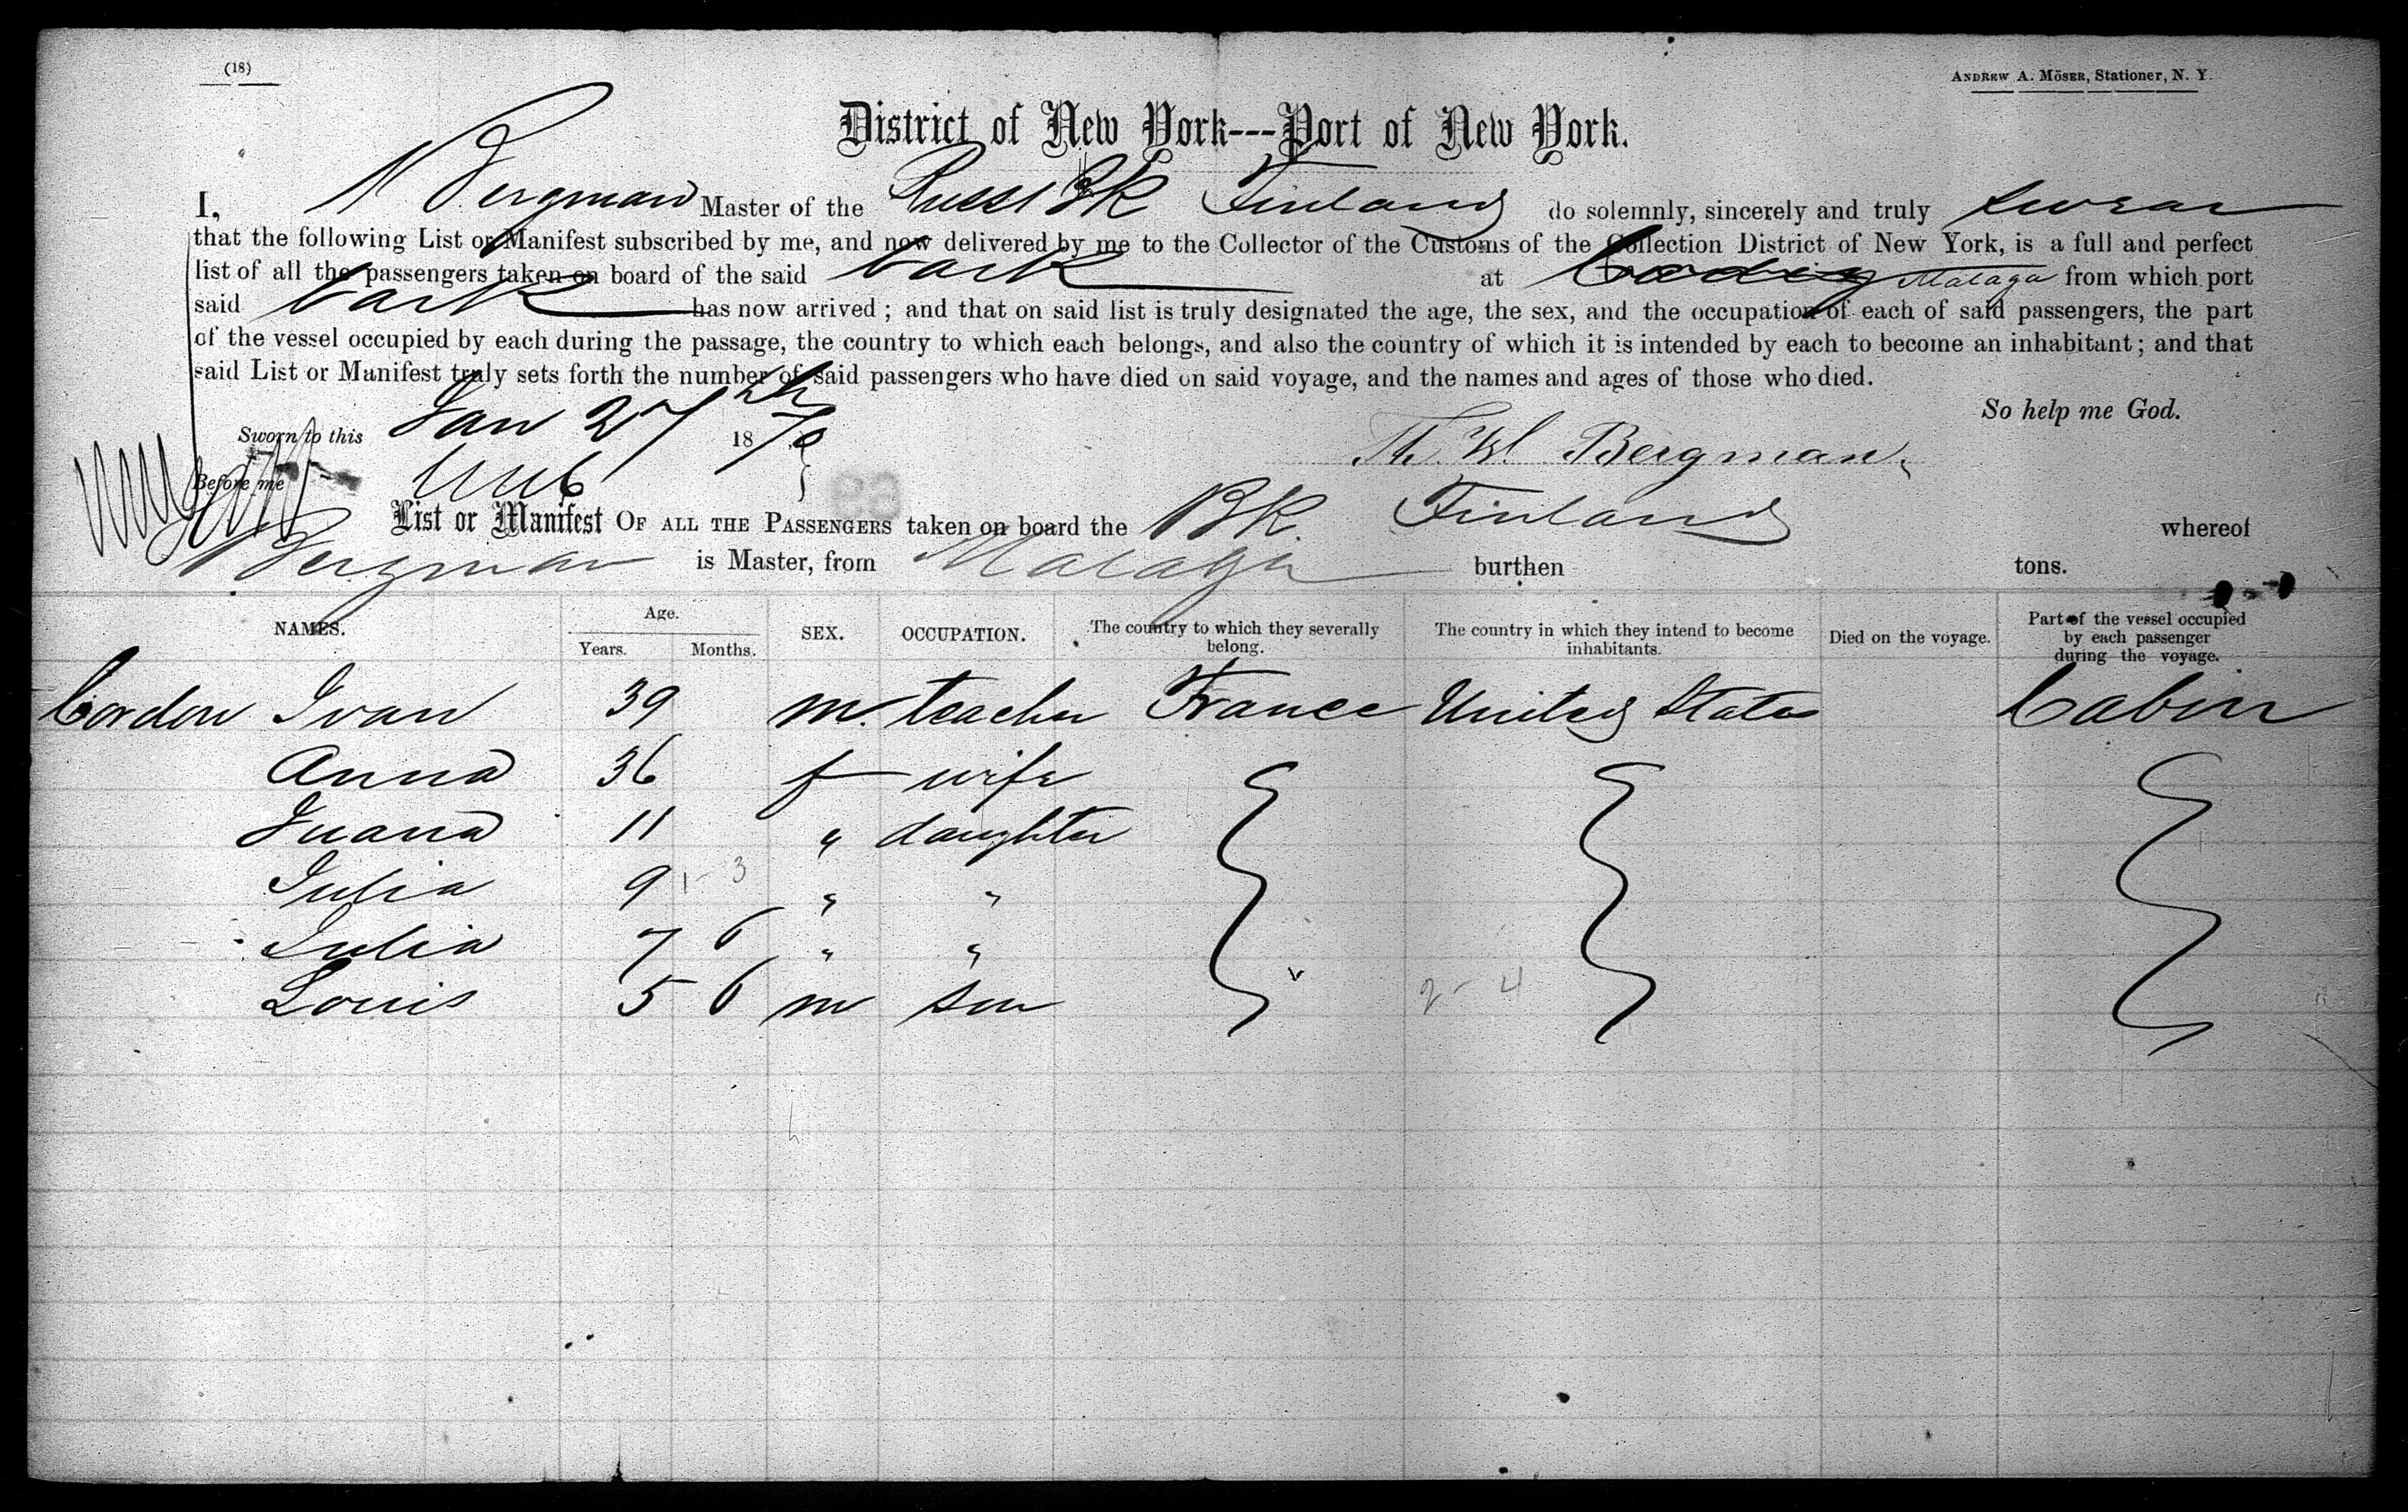 (18)
ANDREW A. MÖSER, Stationer, N. Y.
District of New York---Port of New York.
I, N Bergman Master of the Russ Bk Finland do solemnly, sincerely and truly swear
that the following List or Manifest subscribed by me, and now delivered by me to the Collector of the Customs of the Collection District of New York, is a full and perfect
list of all the passengers taken on board of the said bark at Cadiz Malaga from which port
said bark has now arrived; and that on said list is truly designated the age, the sex, and the occupation of each of said passengers, the part
of the vessel occupied by each during the passage, the country to which each belongs, and also the country of which it is intended by each to become an inhabitant; and that
said List or Manifest truly sets forth the number of said passengers who have died on said voyage, and the names and ages of those who died.
So help me God.
Sworn to this Jan 27th 1870
Th. Wl Bergman.
Before me
List or Manifest OF ALL THE PASSENGERS taken on board the Bk. Finland whereof
Bergman is Master, from Malaga burthen tons.
NAMES. Age. Years. Months. SEX. OCCUPATION. The country to which they severally belong. The country in which they intend to become inhabitants. Died on the voyage. Part of the vessel occupied by each passenger during the voyage.
Cordon Ivan 39 m. teacher France United States Cabin
Anna 36 f wife
Juana 11 " daughter
Julia 9 1-3 " "
Julia 7 6 " "
Louis 5 6 m son
2-4